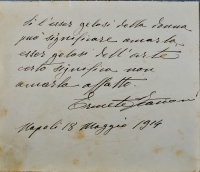 Se l'esser gelosi della donna
può significare amarla,
esser gelosi dell'arte
certo significa non
amarla affatto.
Ermete
Napoli 18 Maggio 1914